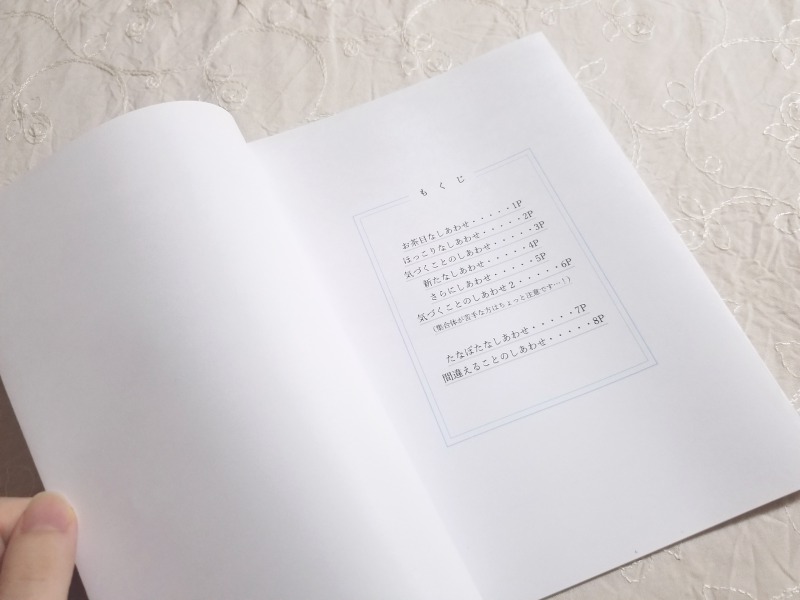 もくじ
お茶目なしあわせ・・・・・1P
ほっこりなしあわせ・・・・・2P
気づくことのしあわせ・・・・・3P
新たなしあわせ・・・・・4P
さらにしあわせ・・・・・5P
気づくことのしあわせ２・・・・・6P
（集合体が苦手な方はちょっと注意です…！）
たなぼたなしあわせ・・・・・7P
間違えることのしあわせ・・・・・8P